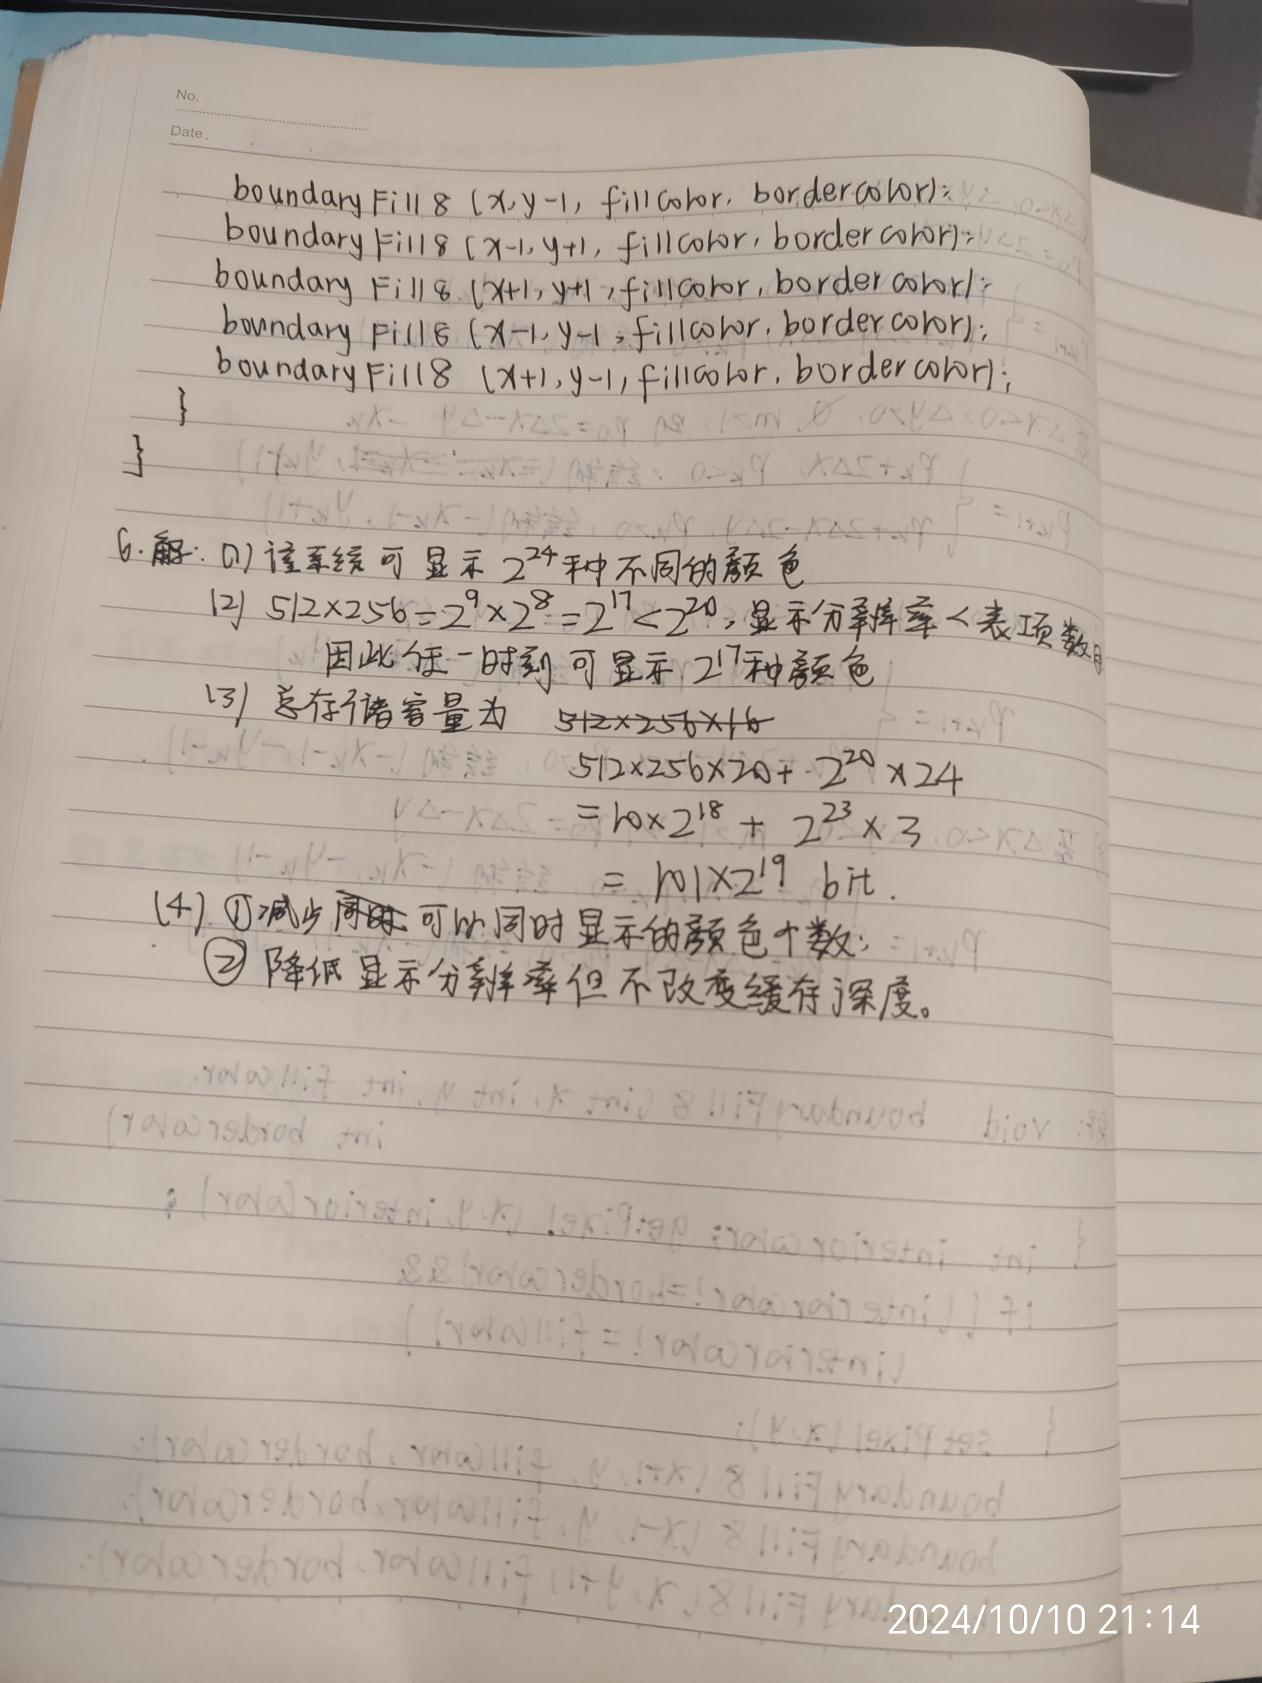 No.
Date.
boundaryFill8 (x, y-1, fillcolor, bordercolor);
boundaryFill8 (x-1, y+1, fillcolor, bordercolor);
boundary Fill8 (x+1, y+1, fillcolor, bordercolor);
boundary Fill8 (x-1, y-1, fillcolor, bordercolor);
boundaryFill8 (x+1, y-1, fillcolor, bordercolor);
}
}
6. 解: (1) 该系统可显示 2^24 种不同的颜色
(2) 512×256=2^9×2^8=2^17<2^20, 显示分辨率<表项数目
因此任一时刻可显示 2^17种颜色
(3) 总存储容量为 512×256×16
512×256×20+ 2^20×24
=10×2^18 + 2^23×3
= 101×2^19 bit.
(4) ①减少同时可以同时显示的颜色个数;
② 降低显示分辨率但不改变缓存深度。
2024/10/10 21:14